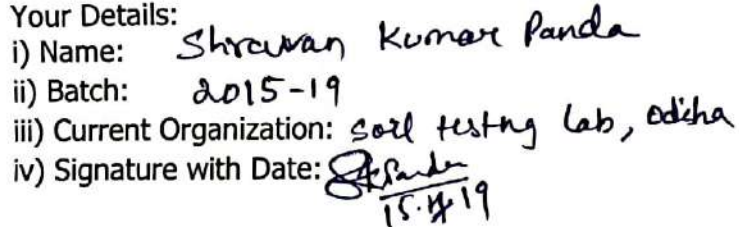 Your Details:
i) Name: Shravan Kumar Panda
ii) Batch: 2015-19
iii) Current Organization: Soil testng Lab, Odisha
iv) Signature with Date: SKPanda